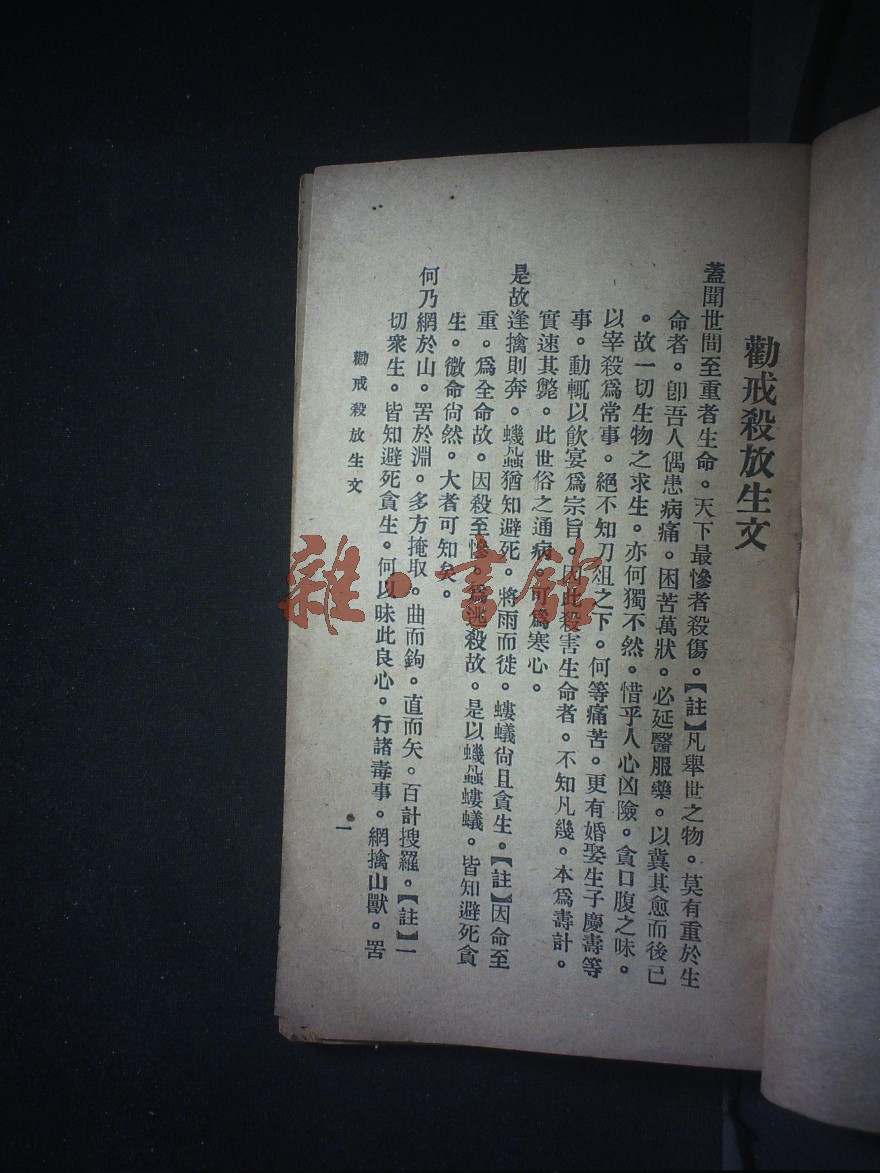 勸戒殺放生文
蓋聞世間至重者生命。天下最慘者殺傷。【註】凡舉世之物。莫有重於生
命者。卽吾人偶患病痛。困苦萬狀。必延醫服藥。以冀其愈而後已
。故一切生物之求生。亦何獨不然。惜乎人心凶險。貪口腹之味。
以宰殺爲常事。絕不知刀俎之下。何等痛苦。更有婚娶生子慶壽等
事。動輒以飲宴爲宗旨。因此殺害生命者。不知凡幾。本爲壽計。
實速其斃。此世俗之通病。可爲寒心。
是故逢擒則奔。蟣蝨猶知避死。將雨而徙。螻蟻尙且貪生。【註】因命至
重。爲全命故。因殺至慘。爲逃殺故。是以蟣蝨螻蟻。皆知避死貪
生。微命尙然。大者可知矣。
何乃網於山。罟於淵。多方掩取。曲而鉤。直而矢。百計搜羅。【註】一
切衆生。皆知避死貪生。何以昧此良心。行諸毒事。網擒山獸。罟
勸戒殺放生文
一
雜·書館